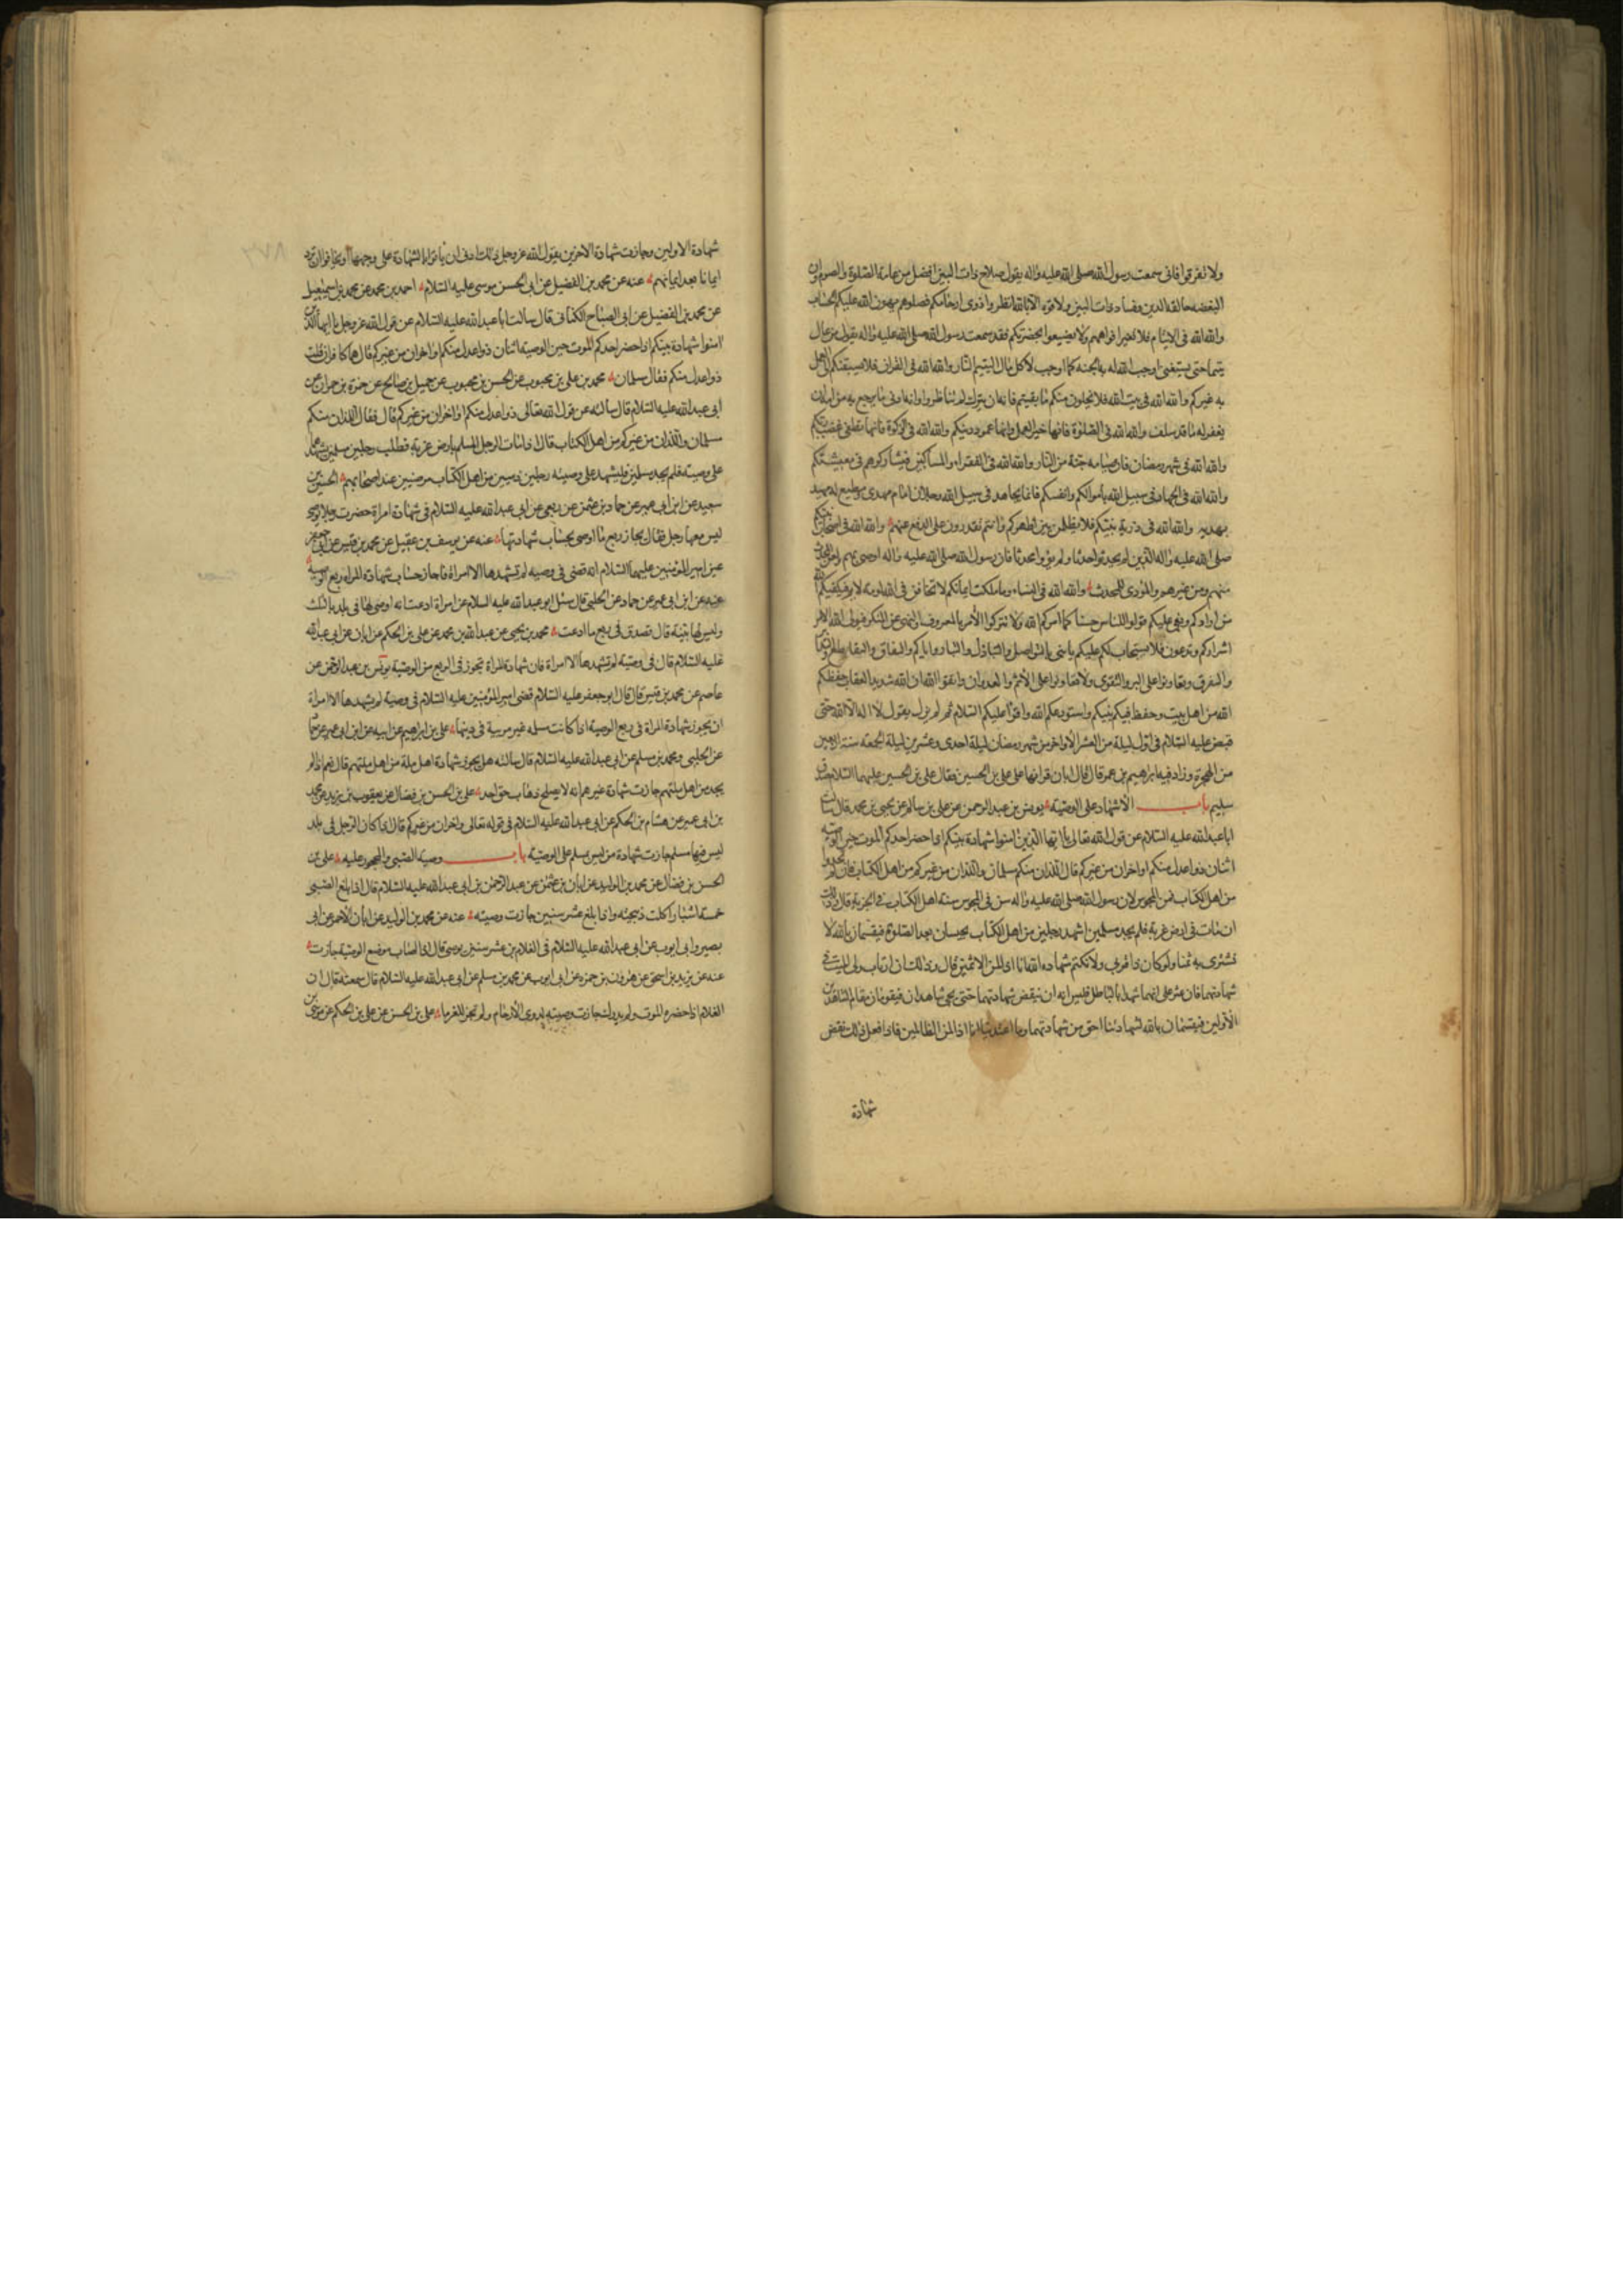 ولا تفرقوا فانى سمعت رسول الله صلى الله عليه واله يقول صلاح ذات البين افضل من عامة الصلوة والصوم وان
البغضه حالقة الدين وفساد ذات البين ولا قوة الا بالله انظروا ذوى ارحامكم فصلوهم يهون الله عليكم الحساب
والله الله فى الايتام فلا تغيرا فواههم ولا يضيعوا بحضرتكم فقد سمعت رسول الله صلى الله عليه واله يقول من عال
يتيما حتى يستغنى اوجب الله له به الجنة كما اوجب لآكل مال اليتيم النار والله الله فى القران فلا يسبقنكم الى العمل
به غيركم والله الله فى بيت الله فلا يخلون منكم ما بقيتم فانه ان يترك لم تناظروا وانه ادنى ما يرجع به من امه ان
يغفر له ما قد سلف والله الله فى الصلوة فانها خير العمل وانها عمود دينكم والله الله فى الزكوة فانها تطفى غضب ربكم
والله الله فى شهر رمضان فان صيامه جنة من النار والله الله فى الفقراء والمساكين فشاركوهم فى معيشتكم
والله الله فى الجهاد فى سبيل الله باموالكم وانفسكم فانما يجاهد فى سبيل الله رجلان امام مهدى ومطيع له مهتد
بهديه والله الله فى ذرية نبيكم فلا يظلمن بين اظهركم وانتم تقدرون على الدفع عنهم والله الله فى اصحاب نبيكم
صلى الله عليه واله الذين لم يحدثوا حدثا ولم يؤووا محدثا فان رسول الله صلى الله عليه واله اوصى بهم ولعن المحدث
منهم ومن غيرهم والمؤوى للمحدث والله الله فى النساء وما ملكت ايمانكم لا تخافن فى الله لومة لايم فيكفيكم الله
من ارادكم وبغى عليكم قولوا للناس حسنا كما امركم الله ولا تتركوا الأمر بالمعروف والنهى عن المنكر فيولى الله الامر
اشراركم وتدعون فلا يستجاب لكم عليكم يا بنى بالتواصل والتباذل والتبار واياكم والنفاق والتقاطع والتدابر
والتفرق وتعاونوا على البر والتقوى ولا تعاونوا على الأثم والعدوان واتقوا الله ان الله شديد العقاب حفظكم
الله من اهل بيت وحفظ فيكم نبيكم واستودعكم الله واقرأ عليكم السلام ثم لم يزل يقول لا اله الا الله حتى
قبض عليه السلام فى اول ليلة من العشر الأواخر من شهر رمضان ليلة احدى وعشرين ليلة الجمعة سنة اربعين
من الهجرة وزاد فيه ابراهيم بن عمر قال قال ابان قرأتها على على بن الحسين فقال على بن الحسين عليهما السلام صدق
سليم باب الاشهاد على الوصية يونس بن عبد الرحمن عن على بن سالم عن يحيى بن محمد قال سالت
ابا عبد الله عليه السلام عن قول الله تعالى يا ايها الذين امنوا شهادة بينكم اذا حضر احدكم الموت حين الوصية
اثنان ذوا عدل منكم او اخران من غيركم قال اللذان منكم مسلمان واللذان من غيركم من اهل الكتاب فان لم تجدوا
من اهل الكتاب فمن المجوس لان رسول الله صلى الله عليه واله سن فى المجوس سنة اهل الكتاب فى الجزية قال وذلك
ان مات فى ارض غربة فلم يجد مسلمين اشهد رجلين من اهل الكتاب يحبسان بعد الصلوة فيقسمان بالله لا
نشترى به ثمنا ولو كان ذا قربى ولا نكتم شهادة الله انا اذا لمن الاثمين قال وذلك ان ارتاب ولى الميت فى
شهادتهما فان عثر على انهما شهدا بالباطل فليس له ان ينقض شهادتهما حتى يجئ شاهدان فيقومان مقام الشاهدين
الأولين فيقسمان بالله لشهادتنا احق من شهادتهما وما اعتدينا انا اذا لمن الظالمين فاذا فعل ذلك نقض
شهادة
شهادة الاولين وجازت شهادة الاخرين يقول الله عز وجل ذلك ادنى ان ياتوا بالشهادة على وجهها او يخافوا ان ترد
ايمانا بعد ايمانهم عنه عن محمد بن الفضيل عن ابى الحسن موسى عليه السلام احمد بن محمد عن محمد بن اسمعيل
عن محمد بن الفضيل عن ابى الصباح الكنانى قال سالت ابا عبد الله عليه السلام عن قول الله عز وجل يا ايها الذين
امنوا شهادة بينكم اذا حضر احدكم الموت حين الوصية اثنان ذوا عدل منكم او اخران من غيركم قال هما كافران قلت
ذوا عدل منكم فقال مسلمان محمد بن على بن محبوب عن الحسن بن محبوب عن جميل بن صالح عن حمزة بن حمران عن
ابى عبد الله عليه السلام قال سالته عن قول الله تعالى ذوا عدل منكم او اخران من غيركم قال فقال اللذان منكم
مسلمان واللذان من غيركم من اهل الكتاب قال اذا مات الرجل المسلم بارض غربة فطلب رجلين مسلمين يشهدهما
على وصيته فلم يجد مسلمين فليشهد على وصيته رجلين ذميين من اهل الكتاب مرضيين عند اصحابهم الحسين بن
سعيد عن ابن ابى عمير عن حماد بن عثمن عن ربعى عن ابى عبد الله عليه السلام فى شهادة امراة حضرت رجلا يوصى
ليس معها رجل فقال يجاز ربع ما اوصى بحساب شهادتها عنه عن يوسف بن عقيل عن محمد بن قيس عن ابى جعفر
عن امير المؤمنين عليهما السلام انه قضى فى وصية لم تشهدها الا امراة فاجاز بحساب شهادة المراه ربع الوصية
عنه عن ابن ابى عمير عن حماد عن الحلبى قال سئل ابو عبد الله عليه السلام عن امراة ادعت انه اوصى لها فى بلد بالثلث
وليس لها بينة قال تصدق فى ربع ما ادعت محمد بن يحيى عن عبد الله بن محمد عن على بن الحكم عن ابان عن ابى عبد الله
عليه السلام قال فى وصية لم تشهدها الا امراة فان شهادة المراة تجوز فى الربع من الوصية يونس بن عبد الرحمن عن
عاصم عن محمد بن قيس قال قال ابو جعفر عليه السلام قضى امير المؤمنين عليه السلام فى وصية لم يشهدها الا امراة
ان يجوز شهادة المراة فى ربع الوصية اذا كانت مسلمة غير مريبة فى دينها على بن ابراهيم عن ابيه عن ابن ابى عمير عن حماد
عن الحلبى ومحمد بن مسلم عن ابى عبد الله عليه السلام قال سالته هل يجوز شهادة اهل ملة من اهل ملتهم قال نعم اذا لم
يجد من اهل ملتهم جازت شهادة غيرهم انه لا يصلح ذهاب حق احد على بن الحسن بن فضال عن يعقوب بن يزيد عن محمد
بن ابى عمير عن هشام بن الحكم عن ابى عبد الله عليه السلام فى قوله تعالى واخران من غيركم قال اذا كان الرجل فى بلد
ليس فيها مسلم جازت شهادة من ليس بمسلم على الوصية باب وصية الصبى والمحجور عليه على بن
الحسن بن فضال عن محمد بن الوليد عن ابان بن عثمن عن عبد الرحمن بن ابى عبد الله عليه السلام قال اذا بلغ الصبى
خمسة اشبار اكلت ذبيحته واذا بلغ عشر سنين جازت وصيته عنه عن محمد بن الوليد عن ابان الأحمر عن ابى
بصير وابى ايوب عن ابى عبد الله عليه السلام فى الغلام بن عشر سنين يوصى قال اذا اصاب موضع الوصية جازت
عنه عن يزيد بن اسحق عن هرون بن حمزه عن ابى ايوب عن محمد بن مسلم عن ابى عبد الله عليه السلام قال سمعته قال ان
الغلام اذا حضره الموت ولم يدرك جازت وصيته لذوى الأرحام ولم تجز للغرباء على بن الحسن عن على بن الحكم عن موسى بن